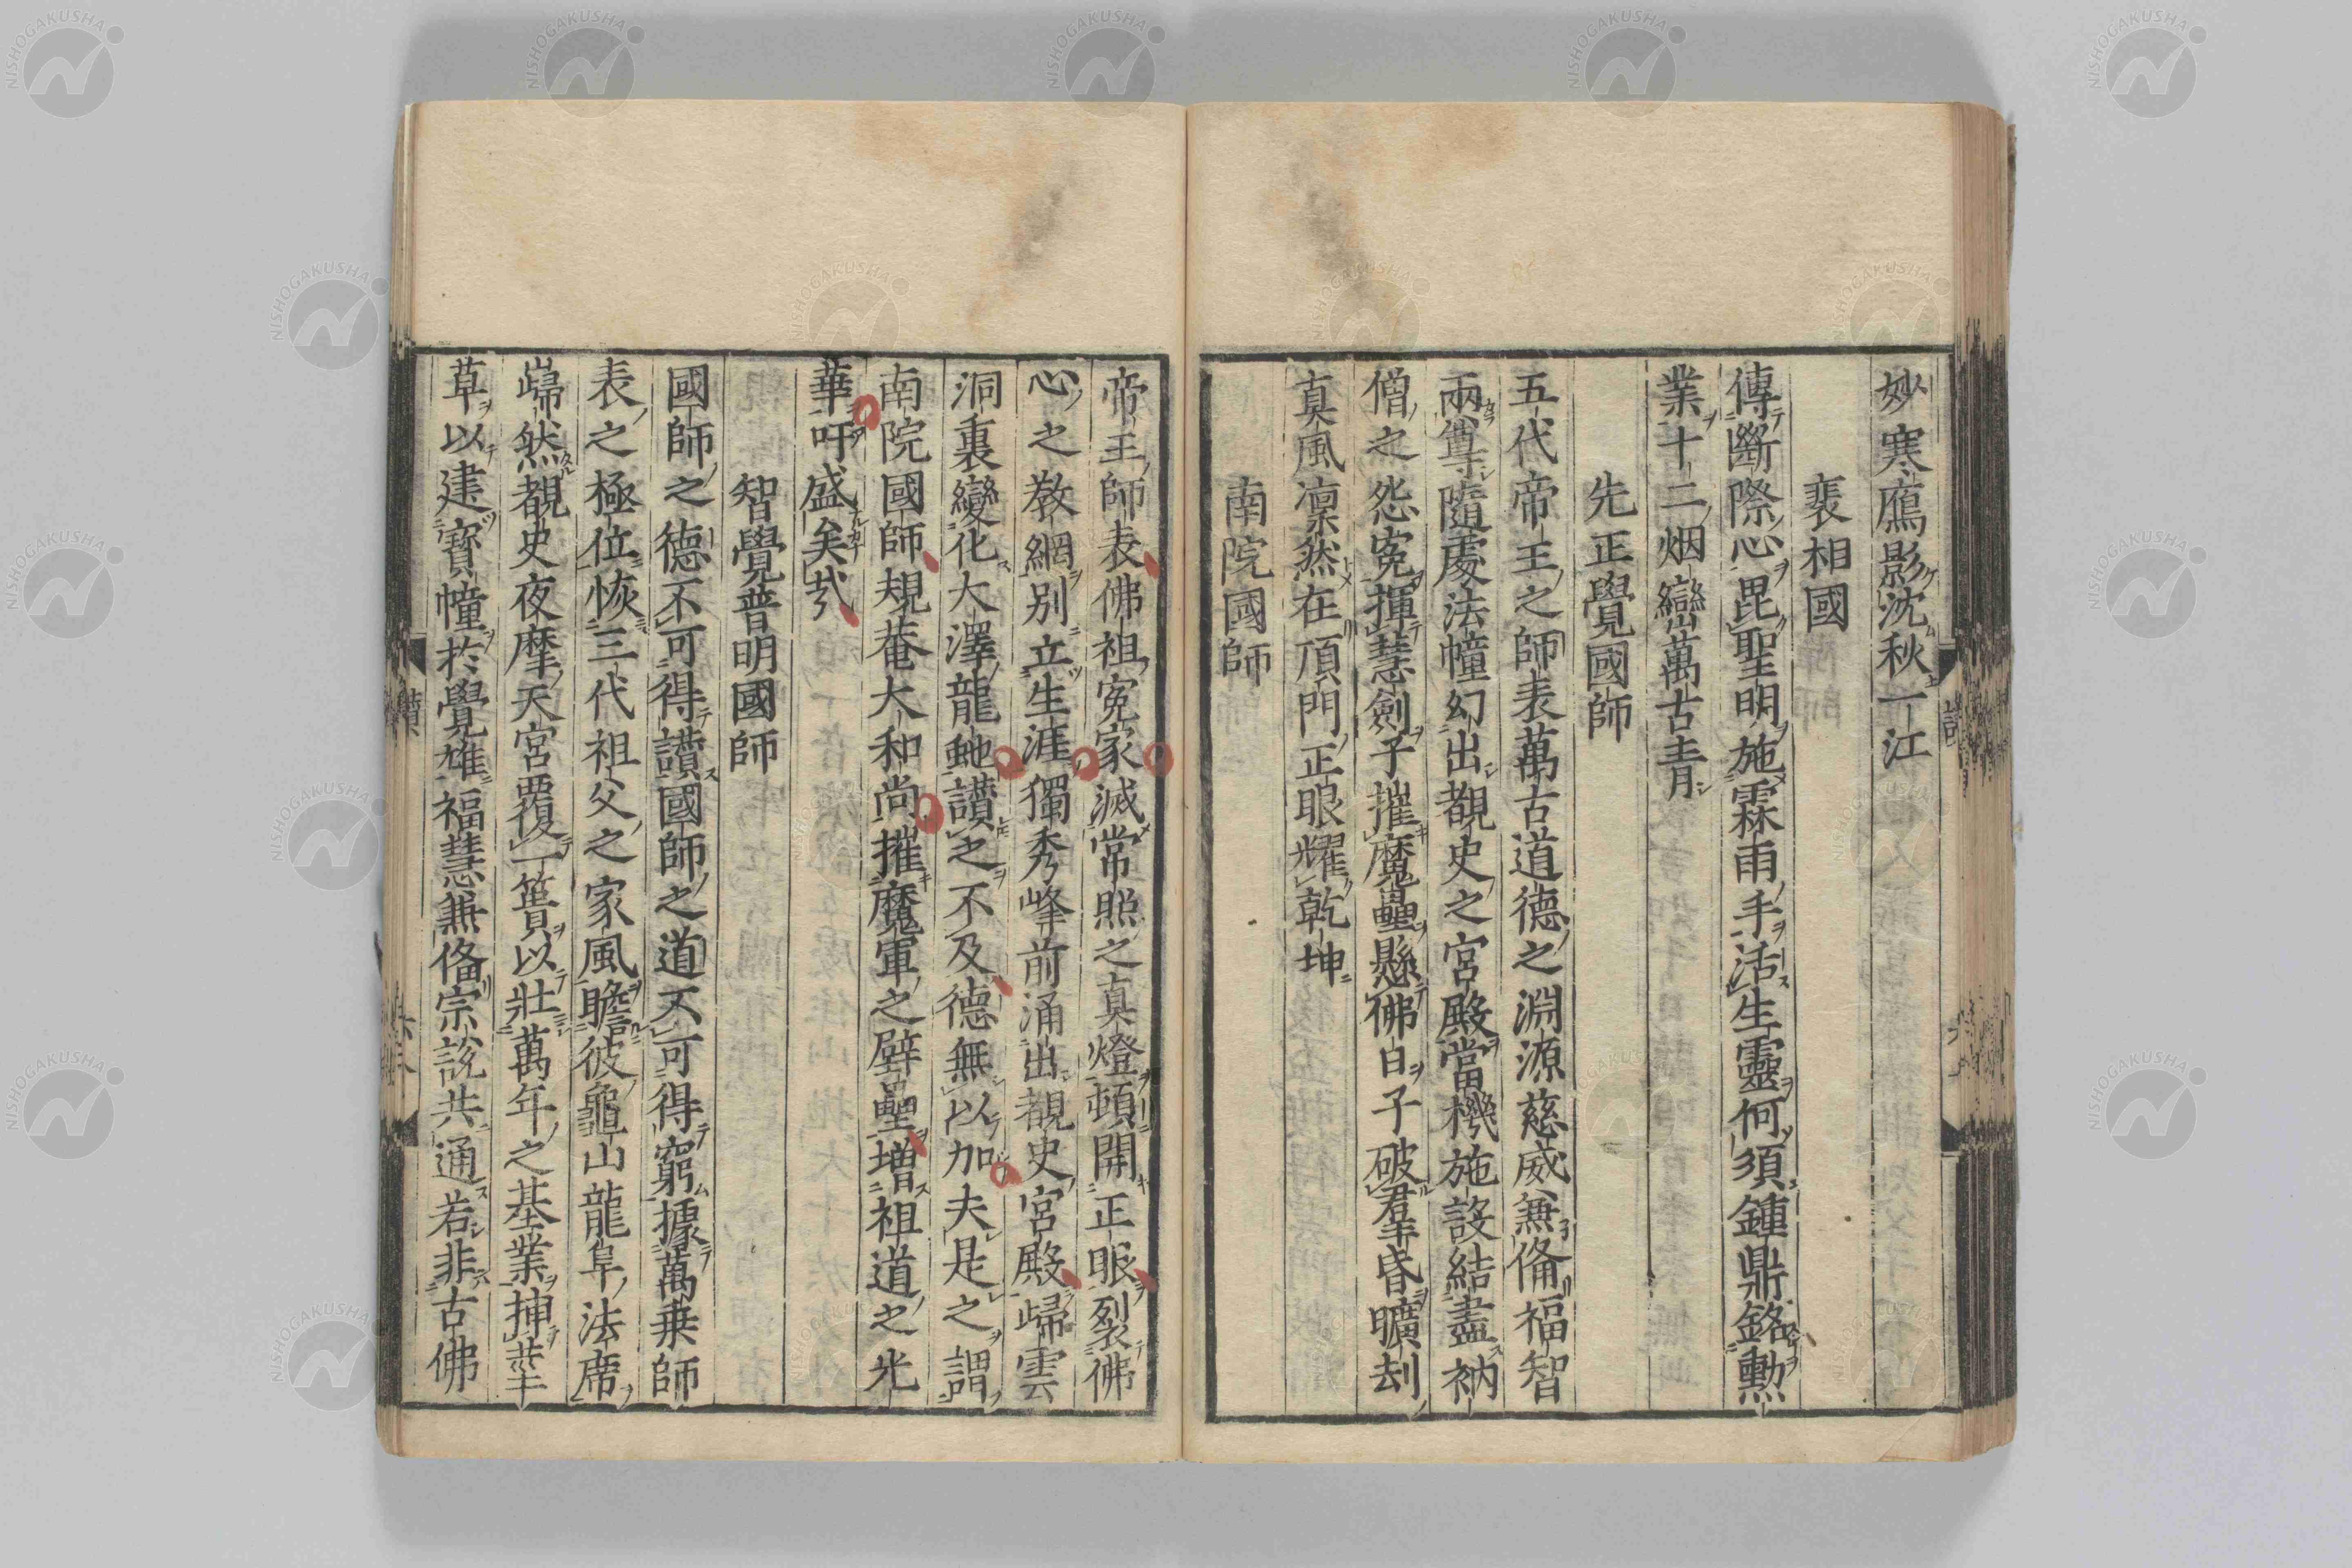 妙寒鴈影沈秋一江
裴相國
傳斷際心毘聖明施霖雨手活生靈何須鍾鼎銘勲
業十二烟巒萬古青
先正覺國師
五代帝王之師表萬古道德之淵源慈威兼俻福智
兩尊隨處法幢幻出覩史之宮殿當機施設結盡衲
僧之怨寃揮慧劍子摧魔壘懸佛日子破羣昏曠刧
真風凛然在頂門正眼耀乾坤
南院國師
帝王師表佛祖寃家滅常照之真燈頓開正眼裂佛
心之教網別立生涯獨秀峰前涌出覩史宮殿歸雲
洞裏變化大澤龍虵讃之不及德無以加夫是之謂
南院國師規菴大和尚摧魔軍之壁壘增祖道之光
華吁盛矣㢤
智覺普明國師
國師之德不可得讃國師之道不可得窮據萬乗師
表之極位恢三代祖父之家風瞻彼龜山龍阜法席
歸然覩史夜摩天宮覆一簣以壯萬年之基業挿莖
草以建寶幢於覺雄福慧兼俻宗說共通若非古佛
NISHOGAKUSHA